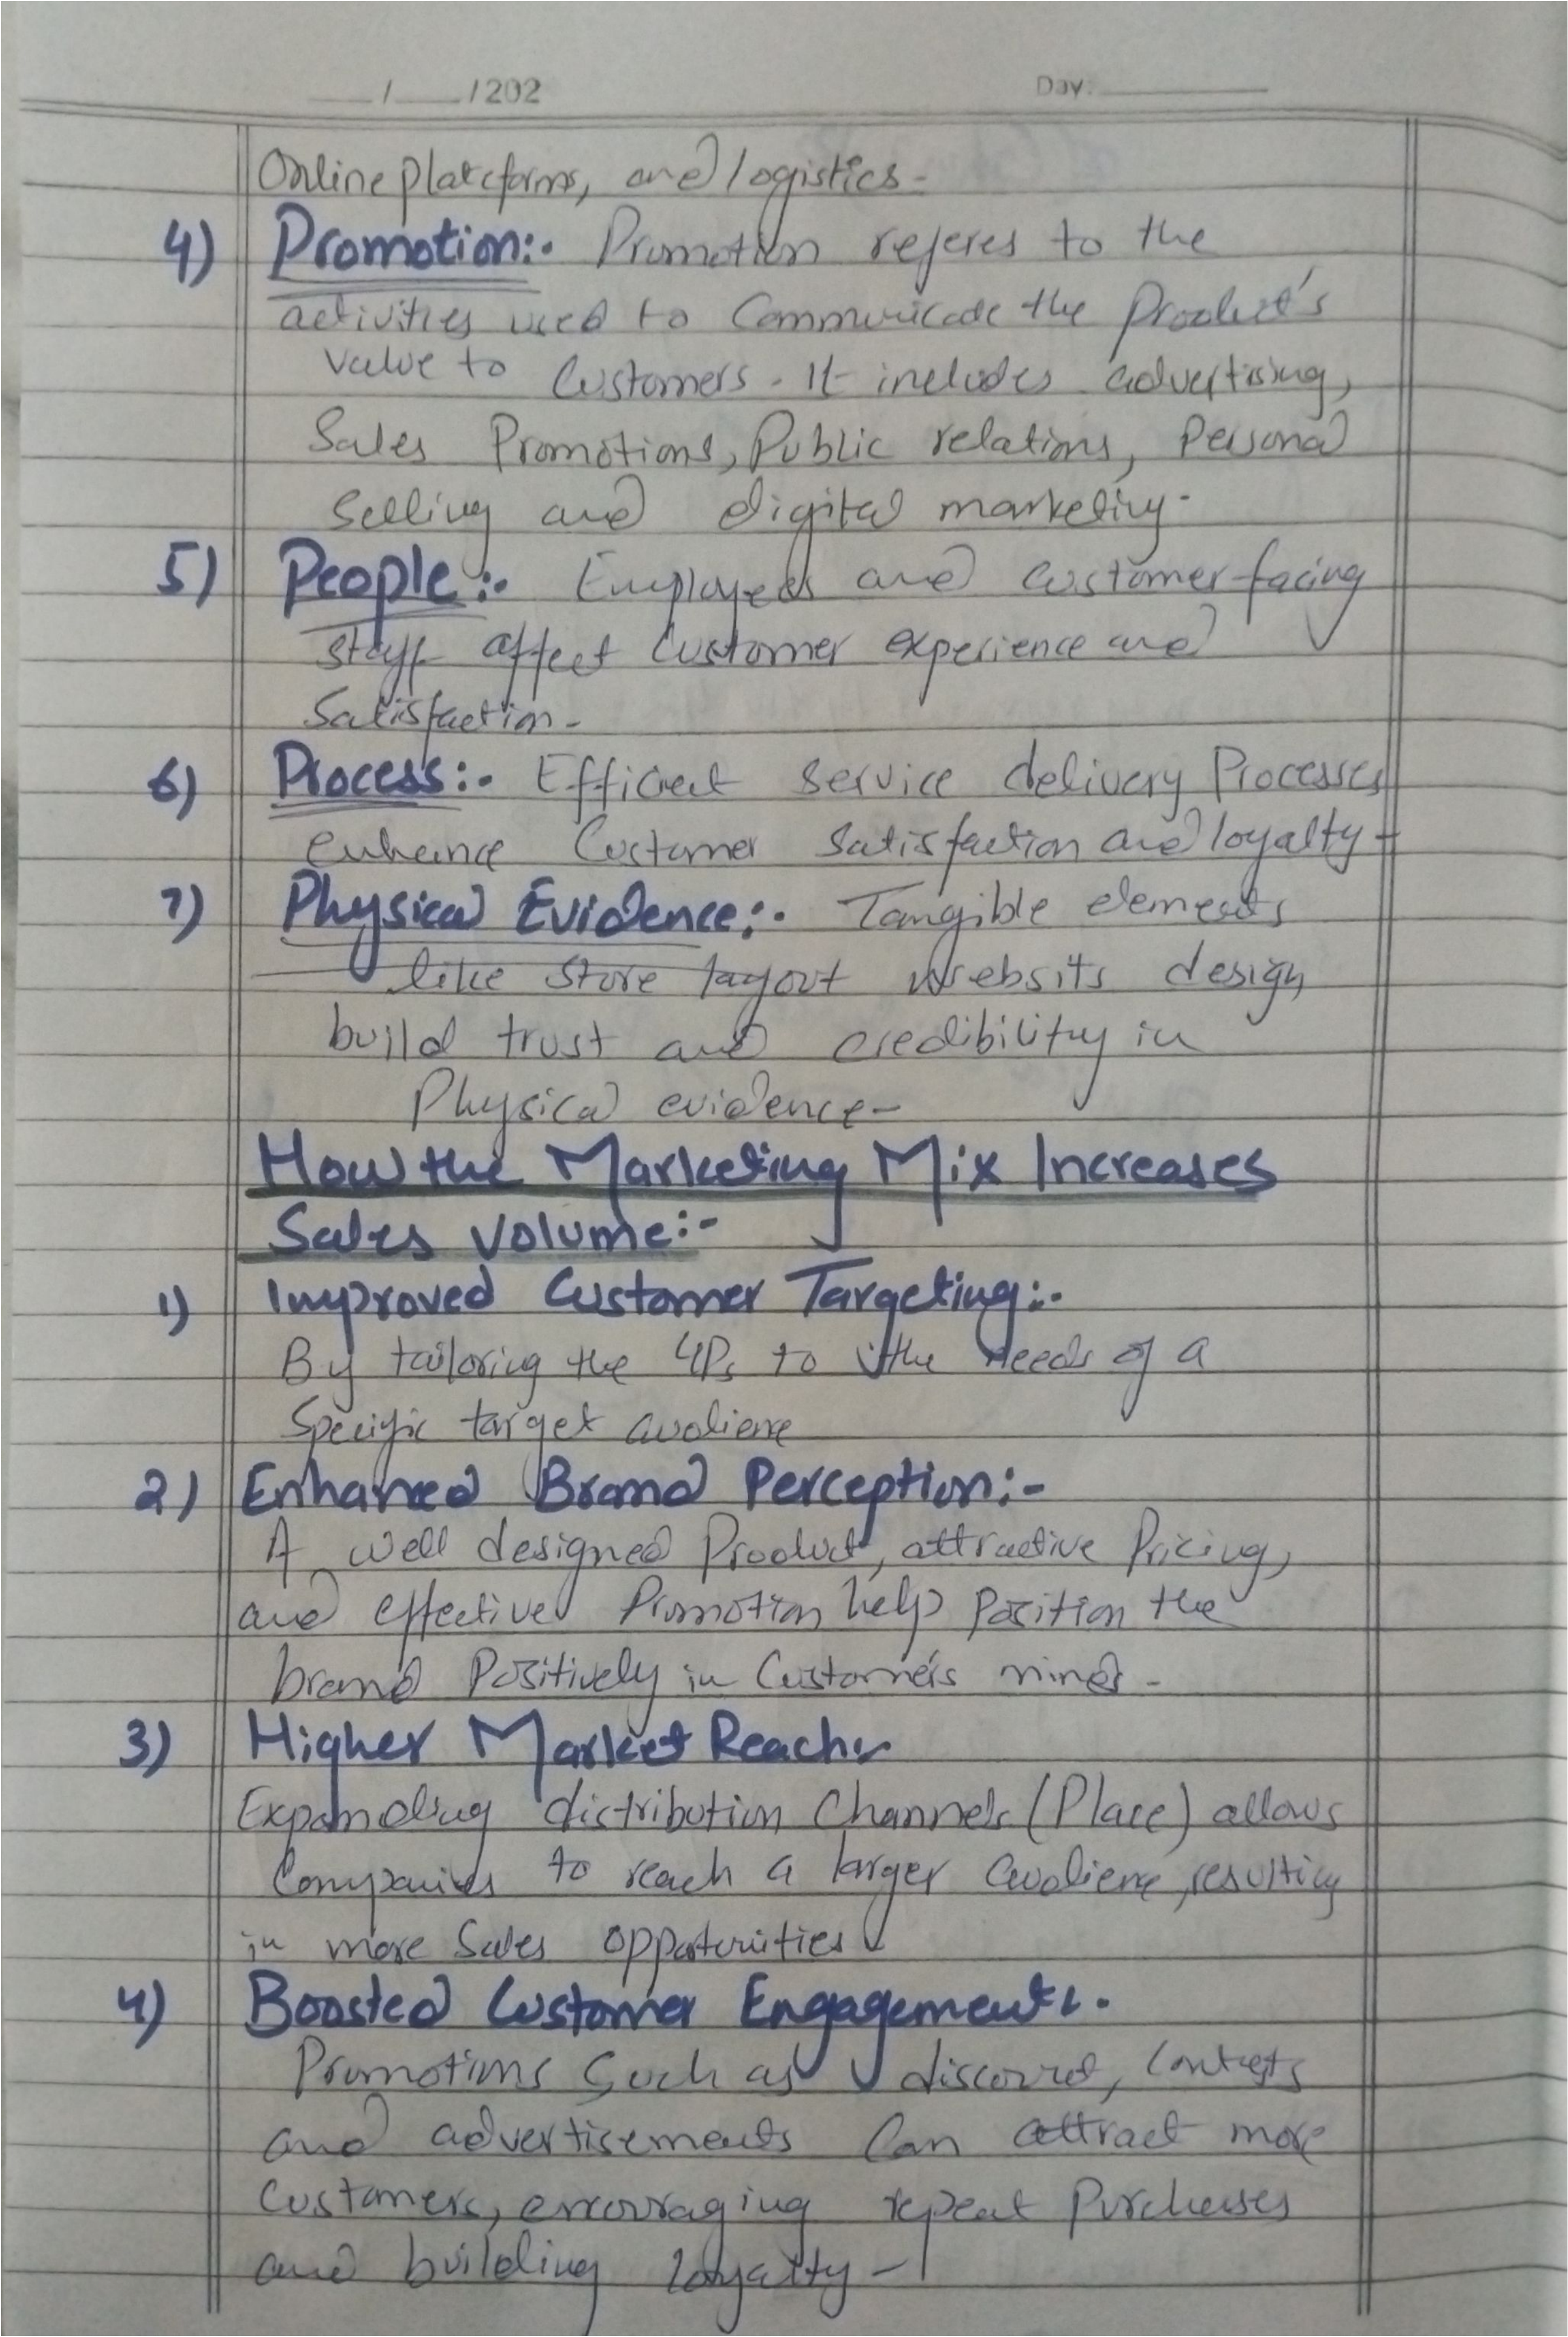 __/__/202 Day:____
Online platcforms, and logistics-
4) Promotion:- Promotion referes to the
activities used to Communicade the Product's
value to Customers. It includes advertising,
Sales Promotions, Public relations, Personal
Selling and digital marketing.
5) People:- Employees and Customer-facing
staff affect Customer experience and
Satisfaction-
6) Process:- Efficient Service delivery Processes
enhance Customer Satisfaction and loyalty-
7) Physical Evidence:- Tangible elements
like store layout websits design
build trust and credibility in
Physical evidence-
How the Marketing Mix Increases
Sales Volume:-
1) Improved Customer Targeting:-
By tailoring the 4Ps to the needs of a
Specific target audience
2) Enhanced Brand Perception:-
A well designed Product, attractive Pricing,
and effective Promotion help Position the
brand Positively in Customer's minds-
3) Higher Market Reach:-
Expanding distribution Channels (Place) allows
Companies to reach a larger audience, resulting
in more Sales opportunities
4) Boosted Customer Engagement:-
Promotions Such as discount, Contests
and advertisements Can attract more
Customers, encouraging repeat Purchases
and building loyalty-